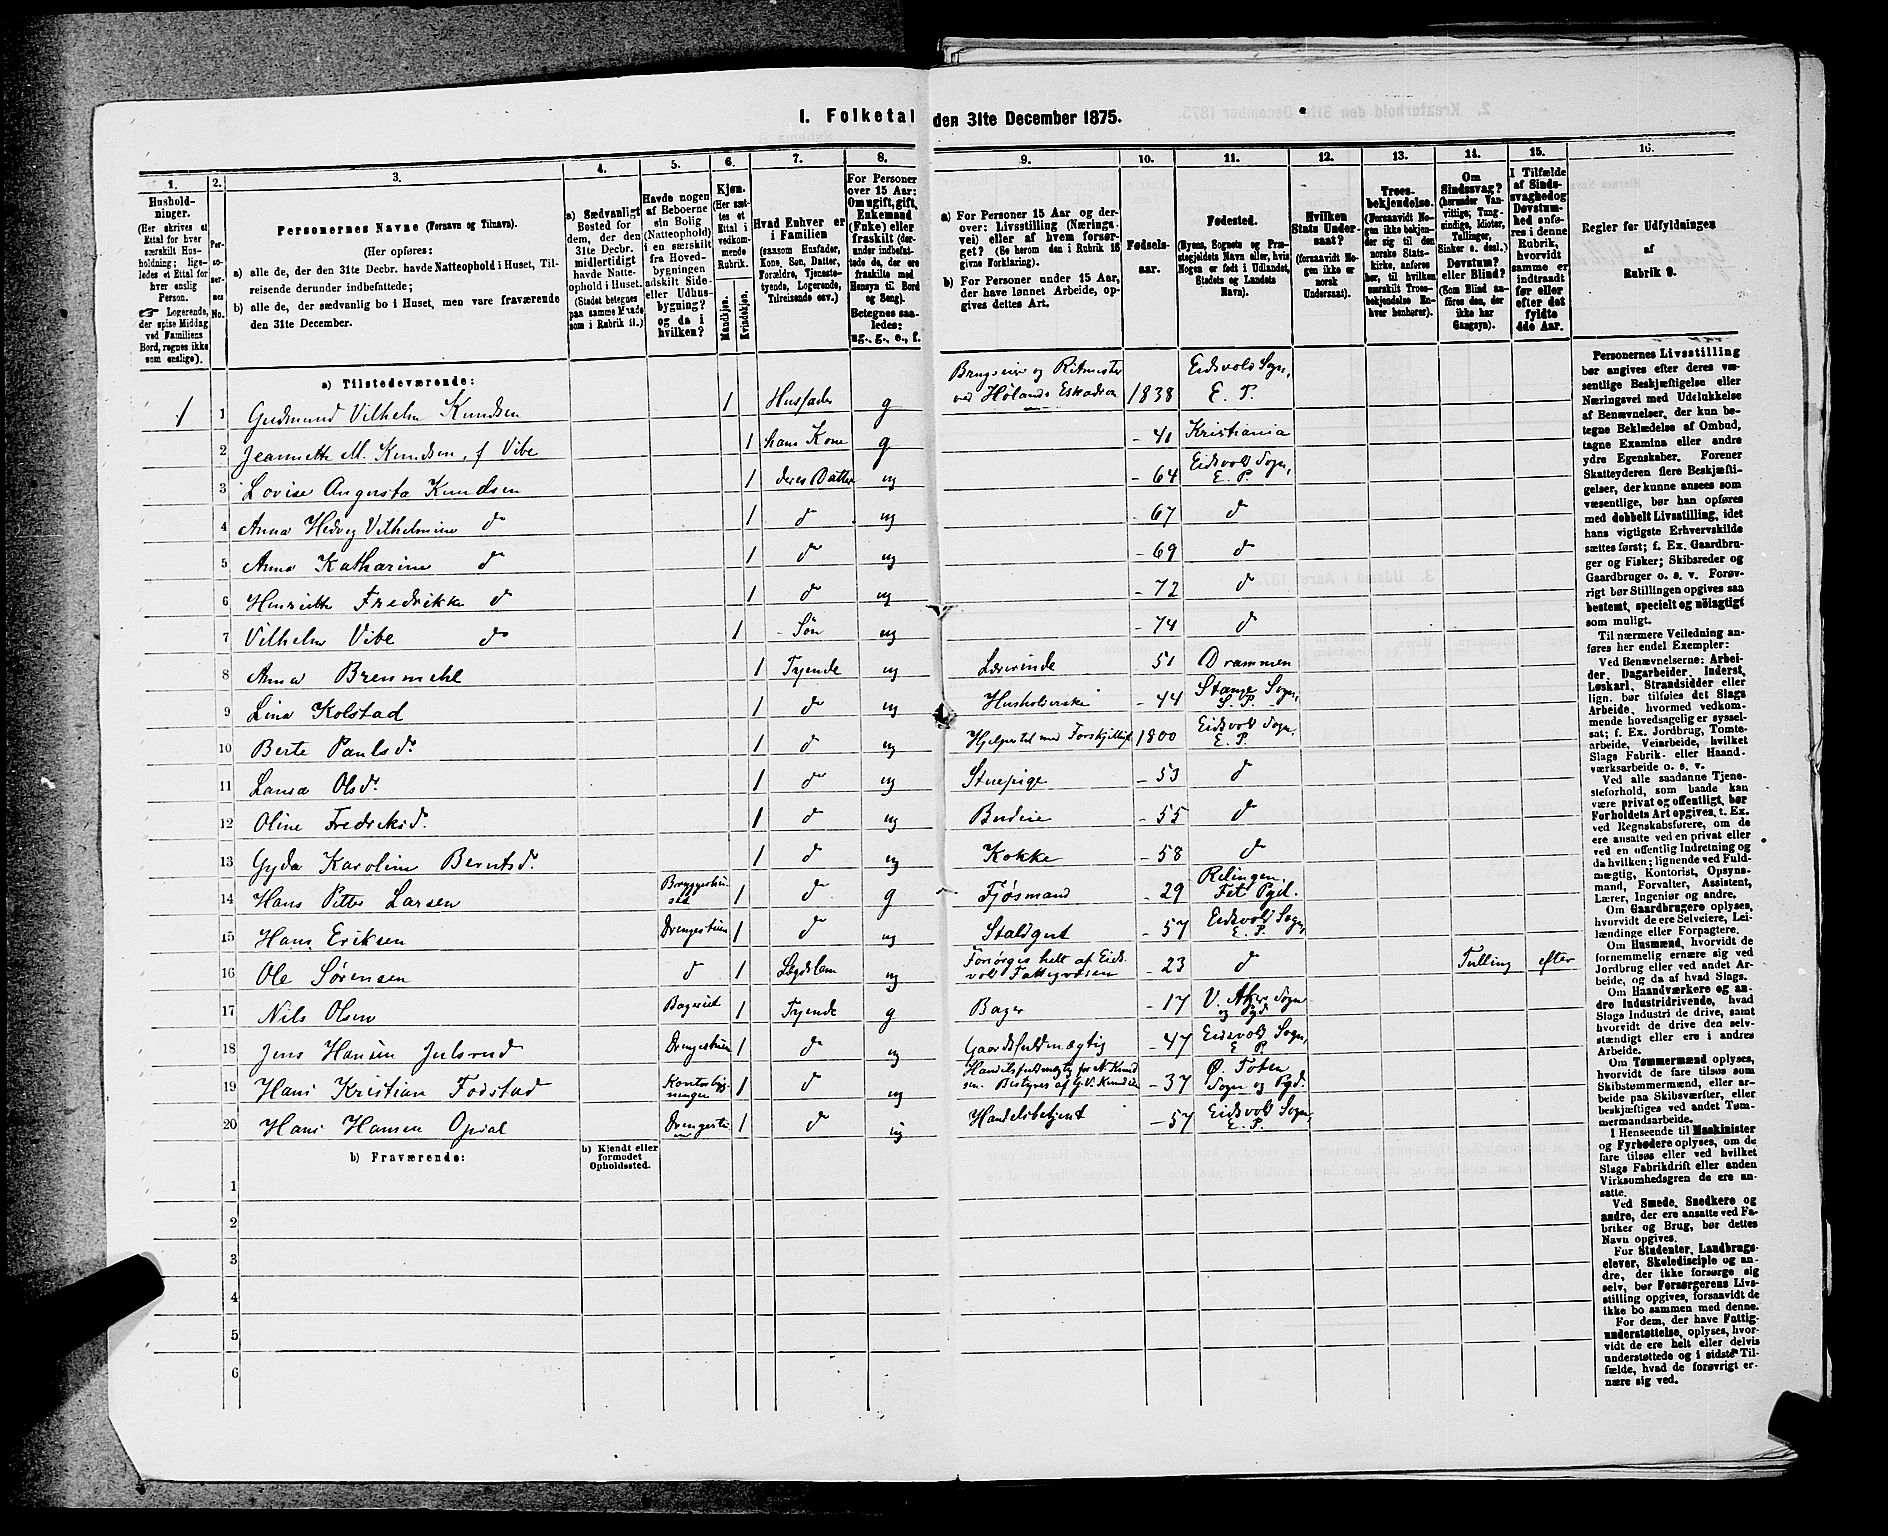 I. Folketal den 31te December 1875.
1.
Husholdninger.
(Her skrives et
Ettal for hver
særskilt Husholdning; ligeledes et Ettal for
hver enslig
Person.
Logerende,
der spise Middag
ved Familiens
Bord, regnes ikke
som enslige).
2.
Personernes
No.
3.
Personernes Navne (Fornavn og Tilnavn).
(Her opføres:
a) alle de, der den 31te Decbr. havde Natteophold i Huset, Tilreisende derunder indbefattede;
b) alle de, der sædvanlig bo i Huset, men vare fraværende
den 31te December.
4.
a) Sædvanligt
Bosted for
dem, der den
31te Decbr.
midlertidigt
havde Natteophold i Huset.
(Stedet betegnes
paa samme Maade
som i Rubrik 11.)
5.
Havde nogen
af Beboerne
sin Bolig
(Natteophold)
i en særskilt
fra Hovedbygningen
adskilt Side-
eller Udhusbygning?
og da i
hvilken?
6.
Kjøn.
(Her sættes et
Ettal i
vedkommende
Rubrik.
Mandkjøn.
Kvindekjøn.
7.
Hvad Enhver er
i Familien
(saasom Husfader,
Kone, Søn, Datter,
Forældre, Tjenestetyende, Logerende,
Tilreisende osv.)
8.
For Personer
over 15 Aar:
Om ugift, gift,
Enkemand
(Enke) eller
fraskilt (derunder indbefattede de, der ere
fraskilte med
Hensyn til Bord
og Seng).
Betegnes saaledes:
ug., g., e., f.
9.
a) For Personer 15 Aar og derover: Livsstilling (Næringsvei) eller af hvem forsørget? (Se herom den i Rubrik 16
givne Forklaring).
b) For Personer under 15 Aar,
der have lønnet Arbeide, opgives dettes Art.
10.
Fødselsaar.
11.
Fødested.
(Byens, Sognets og Præstegjeldets Navn eller, hvis
Nogen er født i Udlandet,
Stedets og Landets
Navn).
12.
Hvilken
Stats Undersaat?
(forsaavidt Nogen ikke er
norsk
Undersaat).
13.
Troesbekjendelse.
(Forsaavidt Nogen ikke bekjender sig til den
norske Statskirke, anføres
her, til hvilken
særskilt Troesbekjendelse Enhver henhører).
14.
Om
Sindssvag?
(herunder Vanvittige, Tungsindige, Idioter,
Tullinger,
Sinker o. desl.)
Døvstum?
eller Blind?
(Som Blind anføres den, der
ikke har
Gangsyn).
15.
I Tilfælde
af Sindssvaghed og
Døvstumhed anføres i denne
Rubrik,
hvorvidt
samme er
indtraadt
før eller
efter det
fyldte
4de Aar.
16.
Regler for Udfyldningen
af
Rubrik 9.
a) Tilstedeværende:
1 1 Gudmund Vilhelm Knudsen 1 Husfader g Brugseier og Ritmester ved Hølands Eskadron 1838 Eidsvold Sogn, E. P.
2 Jeannette M. Knudsen, f Vibe 1 hans Kone g - 41 Kristiania
3 Lovise Augusta Knudsen 1 deres Datter ug - 64 Eidsvold Sogn, E. P.
4 Anna Hedvig Vilhelmine do 1 do ug - 67 do
5 Anna Katharine do 1 do ug - 69 do
6 Henriette Fredrikke do 1 do ug - 72 do
7 Vilhelm Vibe do 1 Søn ug - 74 do
8 Anna Bremmehl 1 Tyende ug Lærerinde - 51 Drammen
9 Lina Kolstad 1 do ug Husholderske - 44 Stange Sogn, S. P.
10 Berte Paulsdr 1 do ug Hjelpertel med Forskjelligt 1800 Eidsvold Sogn, E. P.
11 Lansa Olsdr 1 do ug Stuepige - 53 do
12 Oline Fredriksd. 1 do ug Budeie - 55 do
13 Gyda Karoline Berntsd. 1 do ug Kokke - 58 do
14 Hans Petter Larsen 1 do g Fjøsmand - 29 Relingen, Fet Pgd.
15 Hans Eriksen Drengestuen 1 do ug Staldgut - 57 Eidsvold Sogn, E. P.
16 Ole Sørensen do 1 Lægdslem ug Forsørges helt af Eidsvold Fattigvæsen - 23 do Tulling efter
17 Nils Olsen Bageriet 1 Tyende g Bager - 17 V. Aker Sogn og Pgd.
18 Jens Hansen Julsrud Drengestuen 1 do ug Gaardsfuldmægtig - 47 Eidsvold Sogn, E. P.
19 Hans Kristian Fodstad Kontorbygningen 1 do ug Handelsfuldmægtig for N. Knudsen. Bestyres af G. V. Knudsen - 37 Ø. Toten Sogn og Pgd.
20 Hans Hansen Opsal Drengestuen 1 do ug Handelsbetjent - 57 Eidsvold Sogn, E. P.
b) Fraværende:
b) Kjendt eller
formodet
Opholdssted.
1
2
3
4
5
6
Personernes Livsstilling
bør angives efter deres væsentlige Beskjæftigelse eller
Næringsvei med Udelukkelse
af Benævnelser, der kun betegne Beklædelse af Ombud,
tagne Examina eller andre
ydre Egenskaber. Forener
Skatteyderen flere Beskjæftigelser, der kunne ansees som
væsentlige, bør han opføres
med dobbelt Livsstilling, idet
hans vigtigste Erhvervskilde
sættes først; f. Ex. Gaardbruger og Fisker; Skibsreder og
Gaardbruger o. s. v. Forøvrigt bør Stillingen opgives saa
bestemt, specielt og nøiagtigt
som muligt.
Til nærmere Veiledning anføres her endel Exempler:
Ved Benævnelserne: Arbeider, Dagarbeider, Inderst,
Løskarl, Strandsidder eller
lign. bør tilføies det Slags
Arbeide, hvormed vedkommende hovedsagelig er sysselsat; f. Ex. Jordbrug, Tomtearbeide, Veiarbeide, hvilket
Slags Fabrik- eller Haandværksarbeide o. s. v.
Ved alle saadanne Tjenesteforhold, som baade kan
være privat og offentligt, bør
Forholdets Art opgives, t. Ex.
ved Regnskabsførere, om de
ere ansatte ved en privat eller
ved en offentlig Indretning og
da hvilken; lignende ved Fuldmægtig, Kontorist, Opsynsmand, Forvalter, Assistent,
Lærer, Ingeniør og andre.
Om Gaardbrugere oplyses,
hvorvidt de ere Selveiere, Leilændinge eller Forpagtere.
Om Husmænd, hvorvidt de
fornemmelig ernære sig ved
Jordbrug eller ved andet Arbeide, og da af hvad Slags.
Om Haandværkere og andre Industridrivende, hvad
Slags Industri de drive, samt
hvorvidt de drive den selvstændigt eller ere i andres
Arbeide.
Om Tømmermænd oplyses,
hvorvidt de fare tilsøs som
Skibstømmermænd, eller arbeide paa Skibsværfter, eller
beskjæftiges ved andet Tømmermandsarbeide.
I Henseende til Maskinister
og Fyrbødere oplyses, om de
fare tilsøs eller ved hvilket
Slags Fabrikdrift eller anden
Virksomhedsgren de ere ansatte.
Ved Smede, Snedkere og
andre, der ere ansatte ved Fabriker og Brug, bør dettes
Navn opgives.
For Studenter, Landbrugselever, Skoledisciple og andre, der ikke forsørge sig
selv, bør Forsørgerens Livsstilling opgives, forsaavidt de
ikke bo sammen med denne.
For dem, der have Fattigunderstøttelse, oplyses, hvorvidt de ere helt eller delvis
understøttede og i sidste Tilfælde, hvad de forøvrigt ernære sig ved.